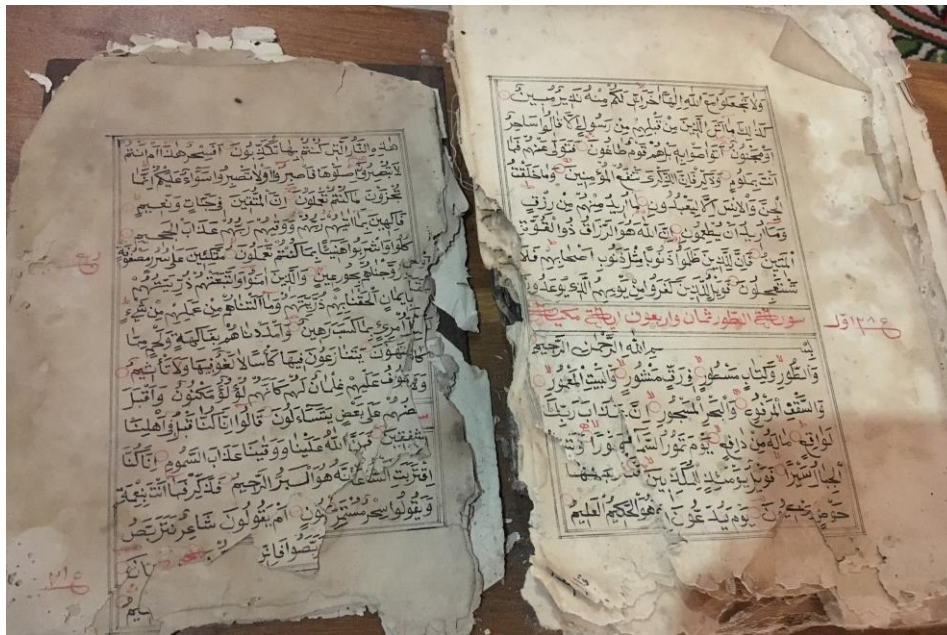 ولا تجعلوا مع الله الها اخر اني لكم منه نذير مبين
كذلك ما اتى الذين من قبلهم من رسول الا قالوا ساحر
او مجنون اتواصوا به بل هم قوم طاغون فتول عنهم فما
انت بملوم وذكر فان الذكرى تنفع المؤمنين وما خلقت
الجن والانس الا ليعبدون ما اريد منهم من رزق
وما اريد ان يطعمون ان الله هو الرزاق ذو القوة
المتين فان للذين ظلموا ذنوبا مثل ذنوب اصحابهم فلا
يستعجلون فويل للذين كفروا من يومهم الذي يوعدون
سورة الطور ثمان واربعون اية مكية
بسم الله الرحمن الرحيم
والطور وكتاب مسطور في رق منشور والبيت المعمور
والسقف المرفوع والبحر المسجور ان عذاب ربك
لواقع ماله من دافع يوم تمور السماء مورا وتسير
الجبال سيرا فويل يومئذ للمكذبين
يوم يدعون هو الحكيم العليم
هذه النار التي كنتم بها تكذبون افسحر هذا ام انتم
لا تبصرون اصلوها فاصبروا او لا تصبروا سواء عليكم انما
تجزون ما كنتم تعملون ان المتقين في جنات ونعيم
فاكهين بما اتيهم ربهم ووقيهم ربهم عذاب الجحيم
كلوا واشربوا هنيئا بما كنتم تعملون متكئين على سرر مصفوفة
وزوجناهم بحور عين والذين امنوا واتبعتهم ذريتهم
بايمان الحقنا بهم ذريتهم وما التناهم من عملهم من شيء
كل امرئ بما كسب رهين وامددناهم بفاكهة ولحم مما
يشتهون يتنازعون فيها كاسا لا لغو فيها ولا تاثيم
ويطوف عليهم غلمان لهم كانهم لؤلؤ مكنون واقبل
بعضهم على بعض يتساءلون قالوا انا كنا قبل في اهلنا
مشفقين فمن الله علينا ووقينا عذاب السموم انا كنا
اقتربت الساعة انه هو البر الرحيم فذكر فما انت بنعمة
ويقولوا سحر مستمر ام يقولون شاعر نتربص